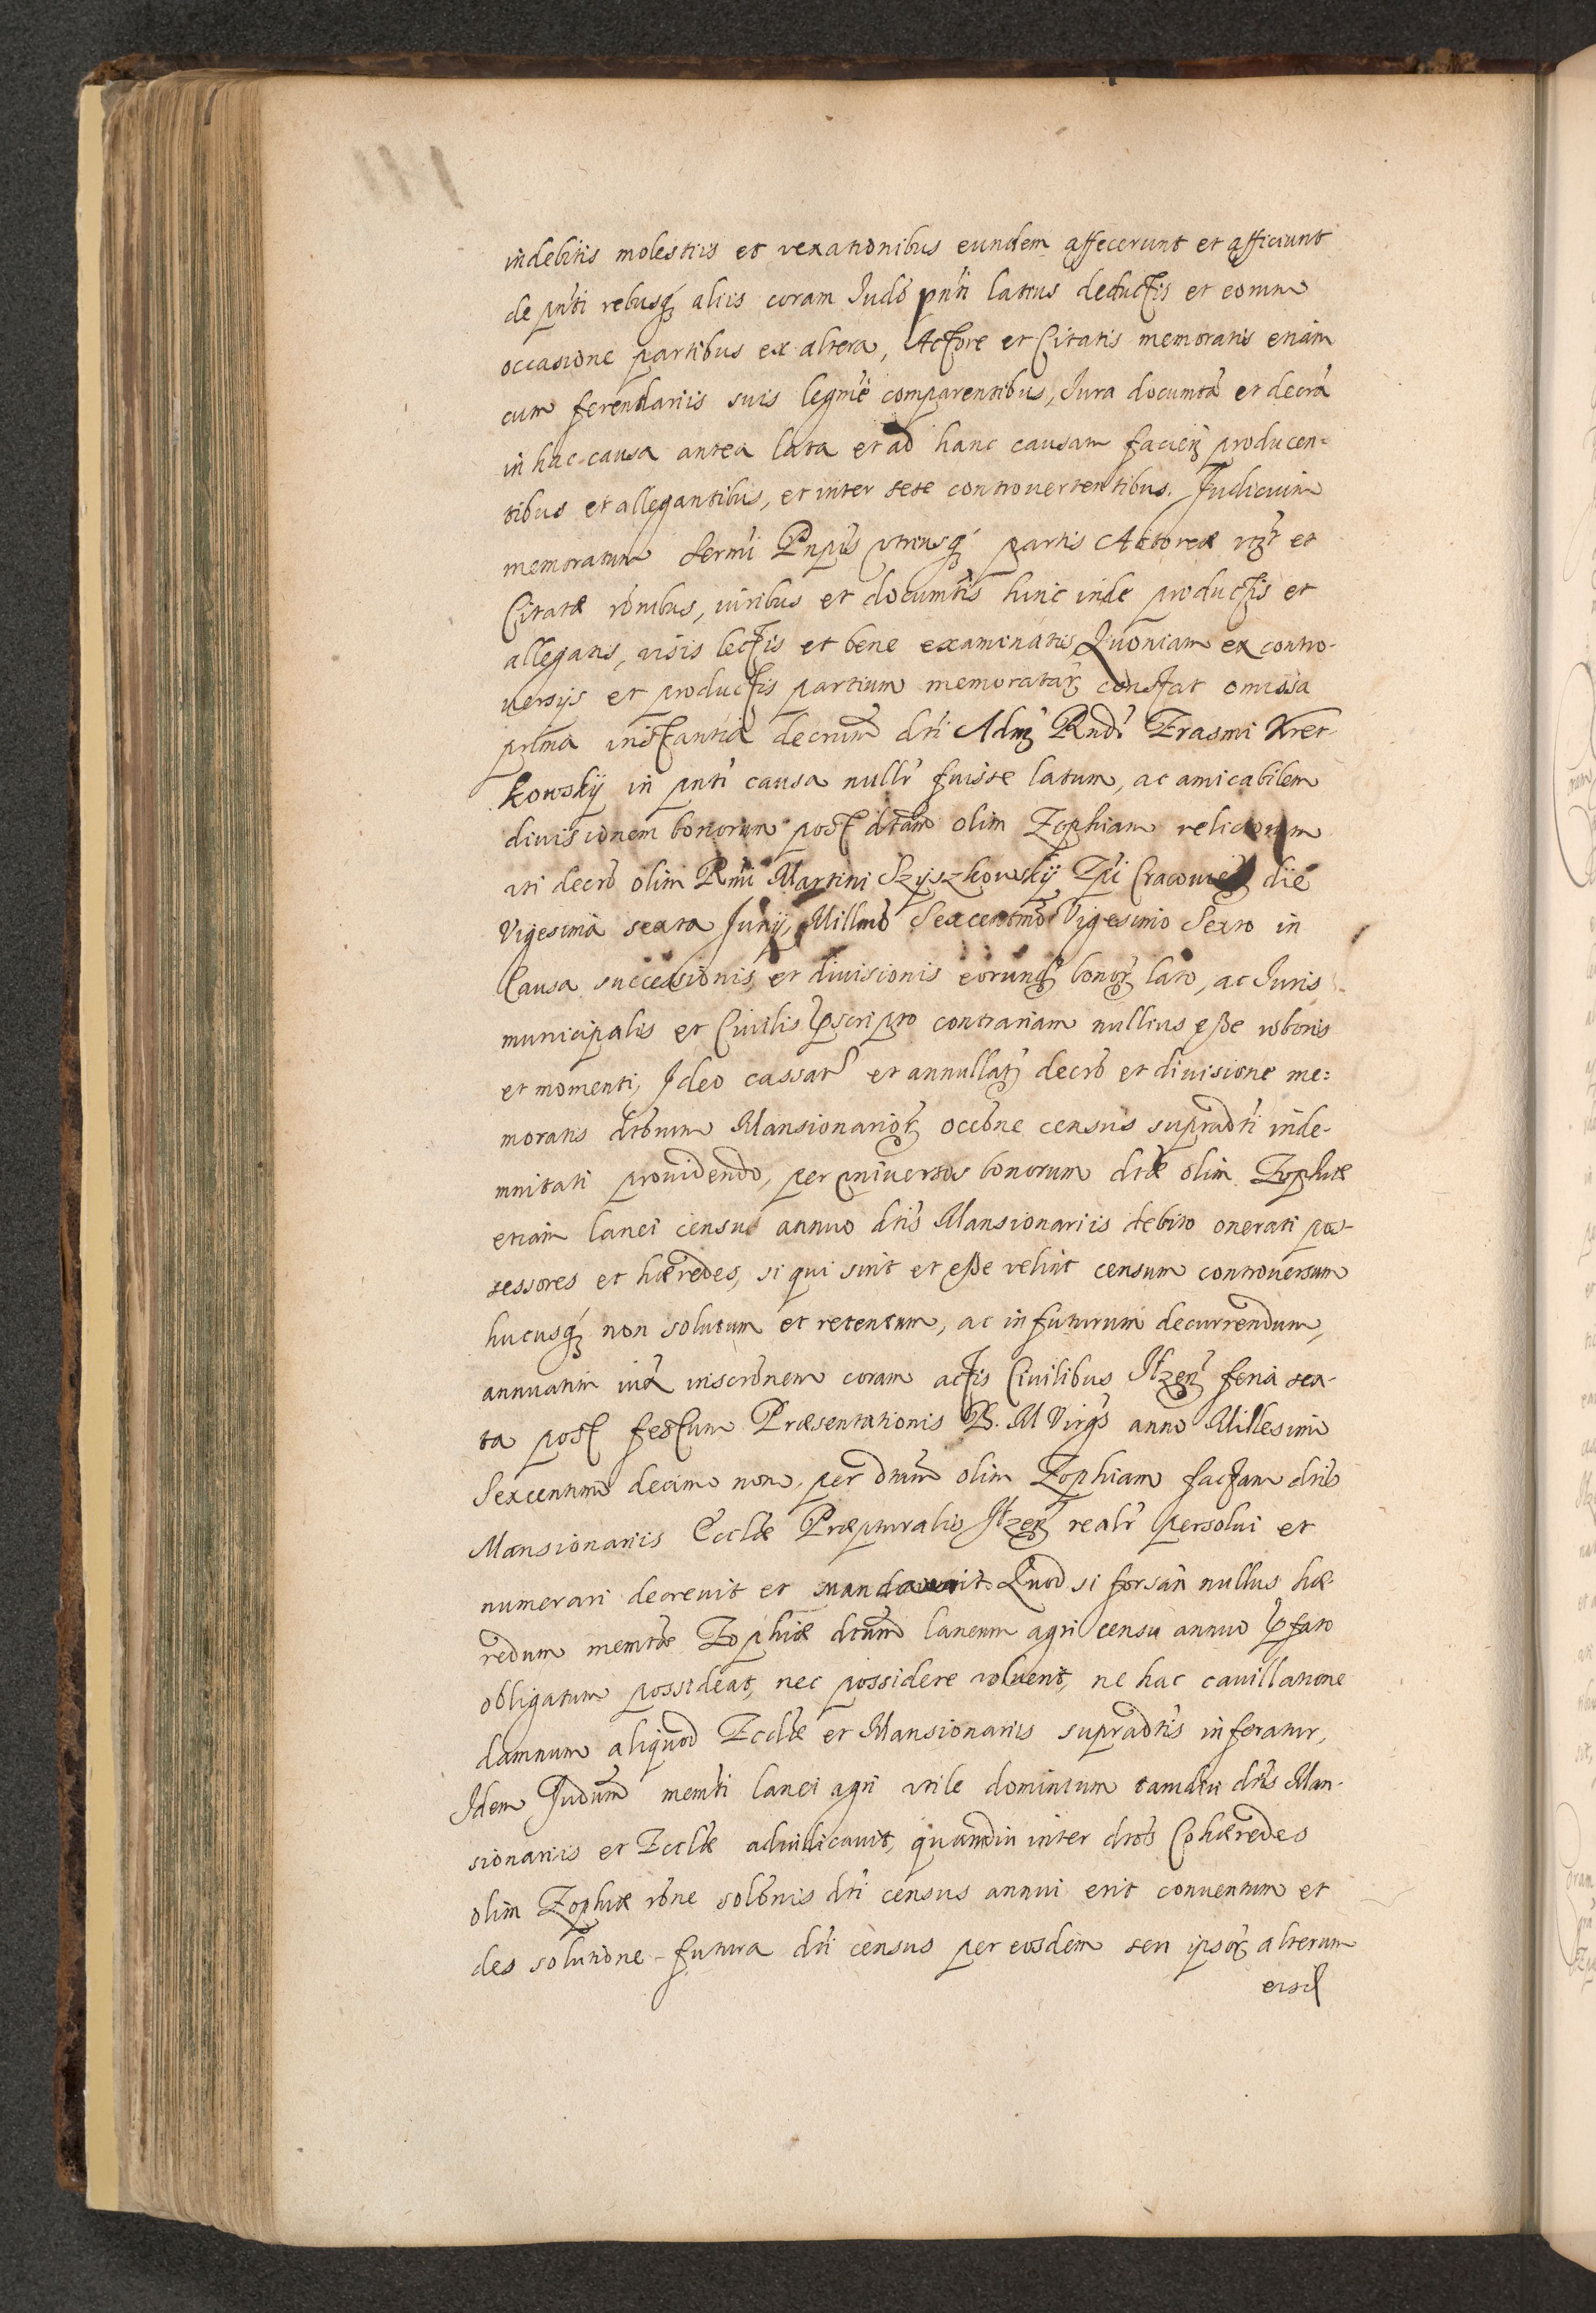 indebitis molestiis et vexationibus eundem affecerunt et afficiunt
de pnti rebusq aliis coram Judo pnti latius deductis et eorum
occasione partibus ex altera, Actore et Citatis memoratis etiam
cum ferendariis suis legme comparentibus, Jura documta et decra
in hac causa antea lata et ad hanc causam facien producen-
tibus et allegantibus, et inter sese controvertentibus. Judicium
memoratum Sermi Pnpis utriusq partis Actoreæ vzt et
Citatæ ronibus, iuribus et documtis hinc inde productis et
allegatis, visis lectis et bene examinatis, Quoniam ex contro-
uersijs et productis partium memoratar constat omissa
prima instantia decrum dti Adm Rndi Erasmi Kret-
kowskij in pnti causa nullr fuisse latum, ac amicabilem
divisionem bonorum post dtam olim Zophiam relictorum
uti decro olim Rmi Martini Szyszkowskij Epi Cracouien die
Vigesima sexta Junij, Millmo Sexcentmo Vigesimo Sexto in
Causa successionis et divisionis eorund bonor lato, ac Juris
municipalis et Civilis pscripto contrariam nullius esse roboris
et momenti, Ideo cassat et annullat decro et divisione me=
moratis dtorum Mansionarior occone census supradti inde-
mnitati providendo, per universos bonorum dtæ olim Zophiæ
etiam lanei censu annuo dtis Mansionariis debito onerati pos-
sessores et hæredes, si qui sint et esse velint censum controversum
hucusq non solutum et retentum, ac in futurum decurrendum,
annuatim iux inscronem coram actis Civilibus Ilzen feria sex-
ta post festum Præsentationis B. M Virgs anno Millesimo
Sexcentmo decimo nono per dtam olim Zophiam factam dtis
Mansionariis Ecclæ Præpturalis Ilzen realr persolui et
numerari decrevit et mandavit. Quod si forsan nullus hæ-
redum memtæ Zophiæ dtum laneum agri censu annuo pfato
obligatum possideat, nec possidere voluerit, ne hac cauillatione
damnum aliquod Ecclæ et Mansionariis supradtis inferatur,
Idem Judum memti lanei agri utile dominium tamdiu dtis Man-
sionariis et Ecclæ aduillicauit, quamdiu inter dtos Cohæredes
olim Zophiæ rone solonis dti census annui erit conventum et
des solutione futura dti census per eosdem seu ipsor alterum
eisd